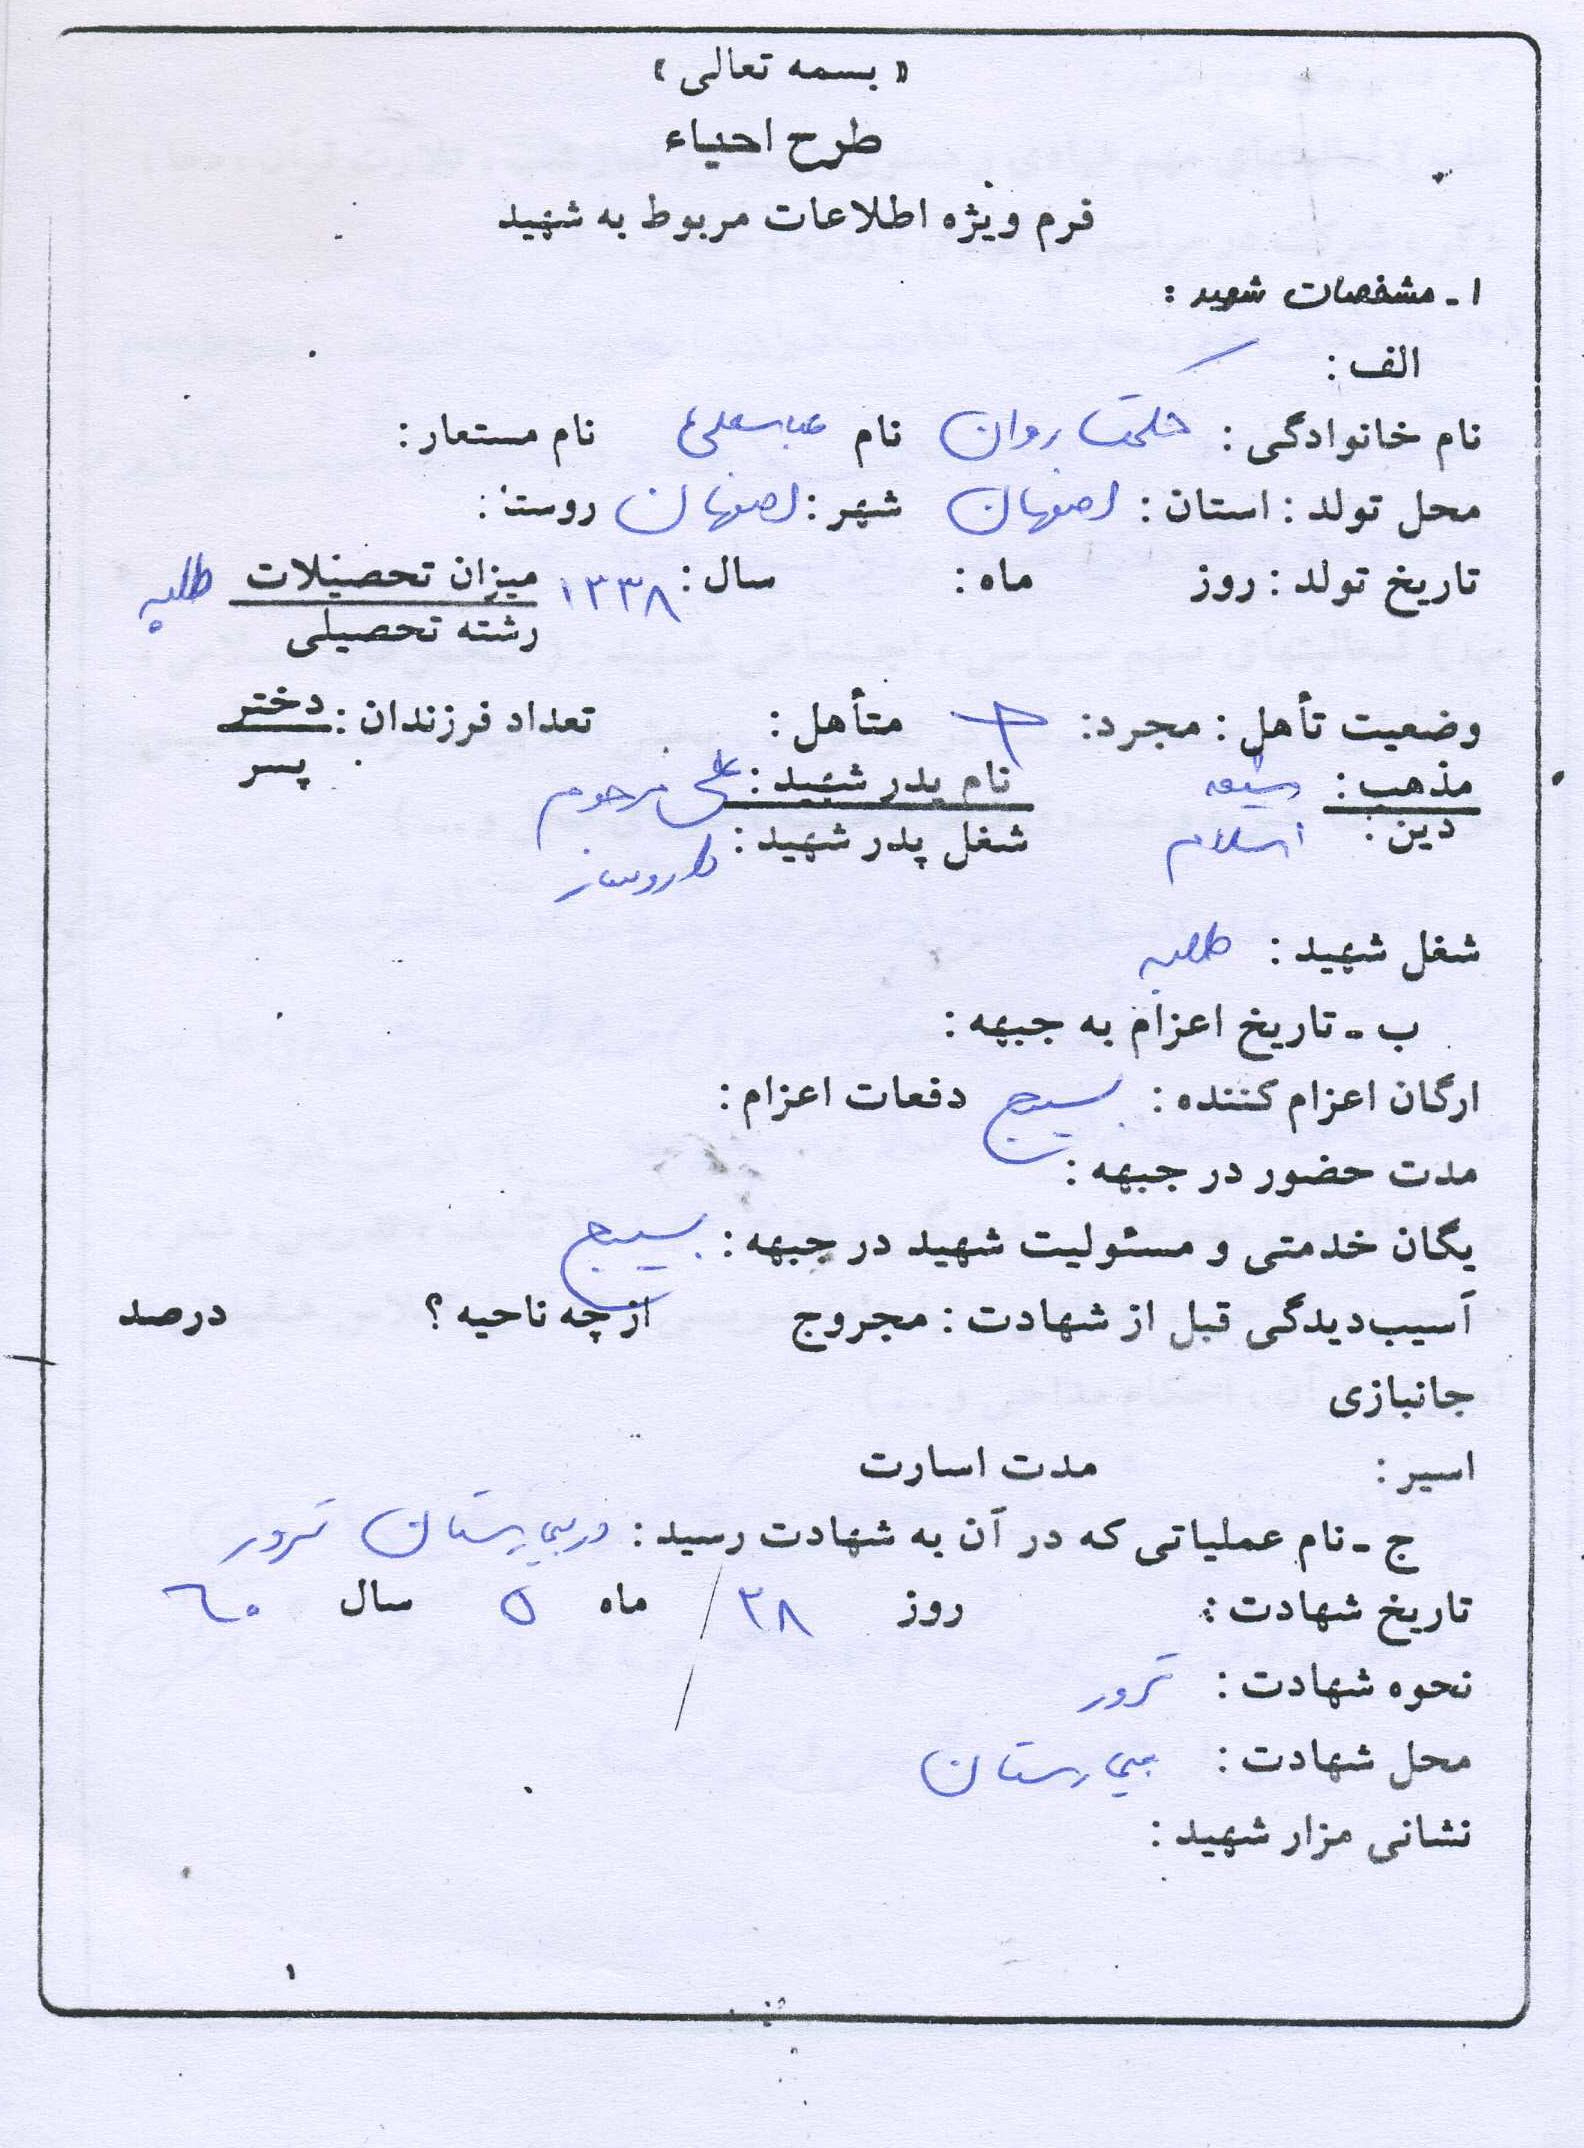 « بسمه تعالی »
طرح احیاء
فرم ویژه اطلاعات مربوط به شهید
۱ ـ مشخصات شهید :
الف :
نام خانوادگی : حکمت روان نام عباسعلی نام مستعار :
محل تولد : استان : اصفهان شهر : اصفهان روستا :
تاریخ تولد : روز ماه : سال : ۱۳۳۸ میزان تحصیلات طلبه
رشته تحصیلی
وضعیت تأهل : مجرد : متأهل : تعداد فرزندان : دختر
پسر
مذهب : شیعه نام پدر شهید : علی مرحوم
دین : اسلام شغل پدر شهید : داروساز
شغل شهید : طلبه
ب ـ تاریخ اعزام به جبهه :
ارگان اعزام کننده : بسیج دفعات اعزام :
مدت حضور در جبهه :
یگان خدمتی و مسئولیت شهید در جبهه : بسیج
آسیب‌دیدگی قبل از شهادت : مجروح از چه ناحیه ؟ درصد
جانبازی
اسیر : مدت اسارت
ج ـ نام عملیاتی که در آن به شهادت رسید : در بیمارستان ترور
تاریخ شهادت : روز ۲۸ / ماه ۵ سال ۶۰
نحوه شهادت : ترور
محل شهادت : بیمارستان
نشانی مزار شهید :
۱